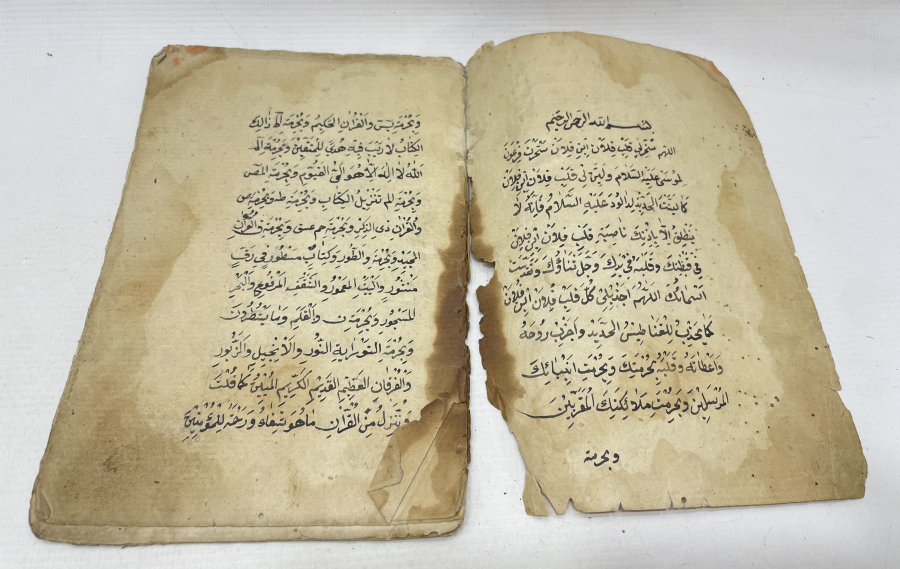 بسم الله الرحمن الرحيم
اللهم سخر لي قلب فلان ابن فلان كما سخرت فرعون
لموسى عليه السلام ولين لي قلب فلان ابن فلان
كما لينت الحديد لداود عليه السلام فانه لا
ينطق الا باذنك ناصية قلب فلان ابن فلان
في قبضتك وقلبه في يدك وجل ثناؤك وتقدست
اسمائك اللهم اجذب لي كل قلب فلان ابن فلان
كما يجذب المغناطيس الحديد واجذب روحه
واعطافه وقلبه بحرمتك وبحرمت انبيائك
المرسلين وبحرمت ملائكتك المقربين
وبحرمة
وَبحُرمَة يٰسٓ وَالقُرْاٰنِ الحَكِيْمِ وَبحُرمَة الٓمٓ ذٰلِكَ
الكِتابُ لَا رَيْبَ فِيهِ هُدًى لِلْمُتَّقِيْنَ وَبحُرمَة الٓمٓ
اَللهُ لَا اِلٰهَ اِلَّا هُوَ الحَيُّ القَيُّومُ وَبحُرمَة الٓمٓصٓ
وَبحُرمَة الٓمٓ تَنْزِيلُ الكِتَابِ وَبحُرمَة طه وَبحُرمَة صٓ
وَالقُرْاٰنِ ذِى الذِّكْرِ وَبحُرمَة حٓم عٓسٓق وَبحُرمَة قٓ وَالقُرْاٰنِ
المَجِيْدِ وَبحُرمَة وَالطُّوْرِ وَكِتَابٍ مَسْطُوْرٍ فِى رَقٍّ
مَنْشُوْرٍ وَالبَيْتِ المَعْمُوْرِ وَالسَّقْفِ المَرْفُوْعِ وَالبَحْرِ
المَسْجُوْرِ وَبحُرمَة نٓ وَالقَلَمِ وَمَا يَسْطُرُوْنَ
وَبحُرمَة التَّوْرٰية النُّوْرِ وَالاِنْجِيلِ وَالزَّبُوْرِ
وَالفُرْقَانِ العَظِيْمِ القَدِيْمِ الكَرِيْمِ المُبِيْنِ كَمَا قُلْتَ
وَنُنَزِّلُ مِنَ القُرْاٰنِ مَا هُوَ شِفَاءٌ وَرَحْمَةٌ لِلْمُؤْمِنِيْنَ